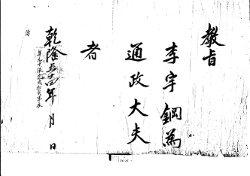 教旨
李宇鋼為
通政大夫
者
乾隆五十四年 月 日